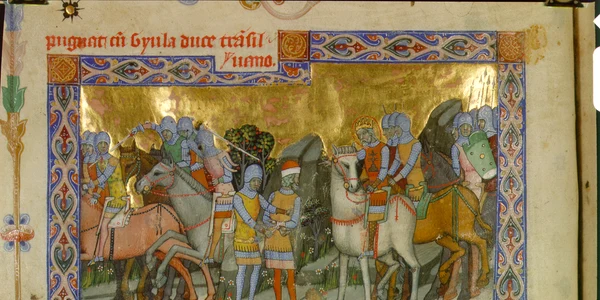 pugnat cū Gyula duce trāſil
Vano.